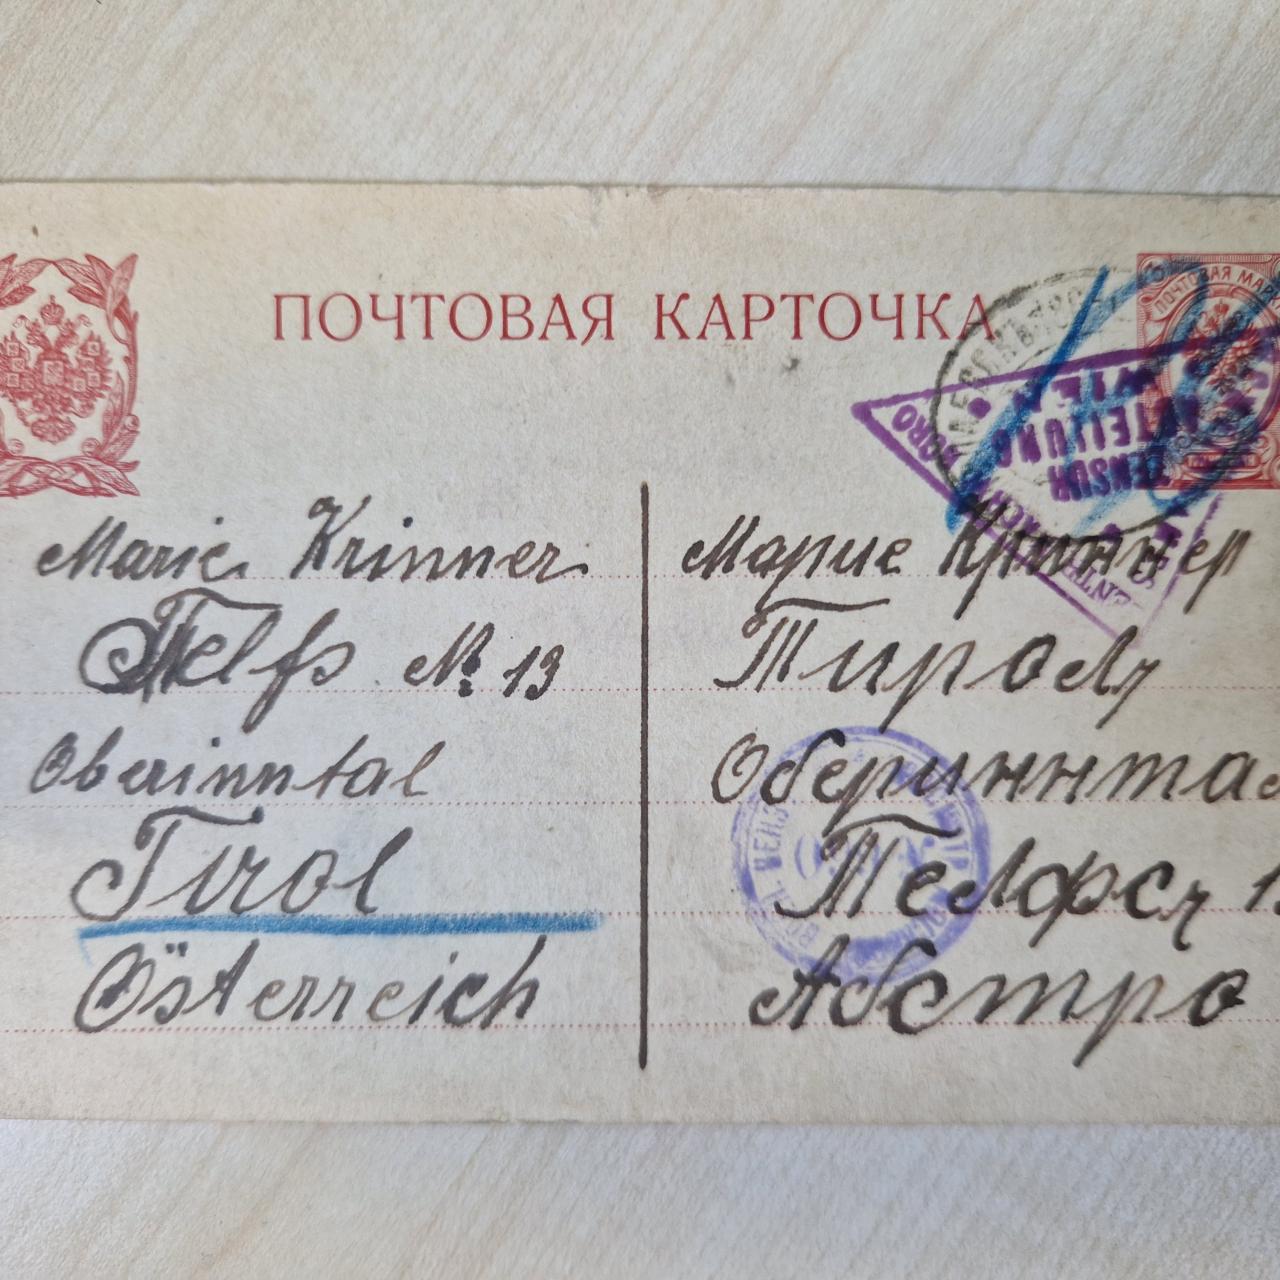 ПОЧТОВАЯ КАРТОЧКА
ПОЧТОВАЯ МАР
ZENSUR
ABTEILUNG
WIEN
Marie Krinner
Telfs № 13
Oberinntal
Tirol
Österreich
Марие Криннер
Тироль
Обериннта
Телфсъ 1
Абстро